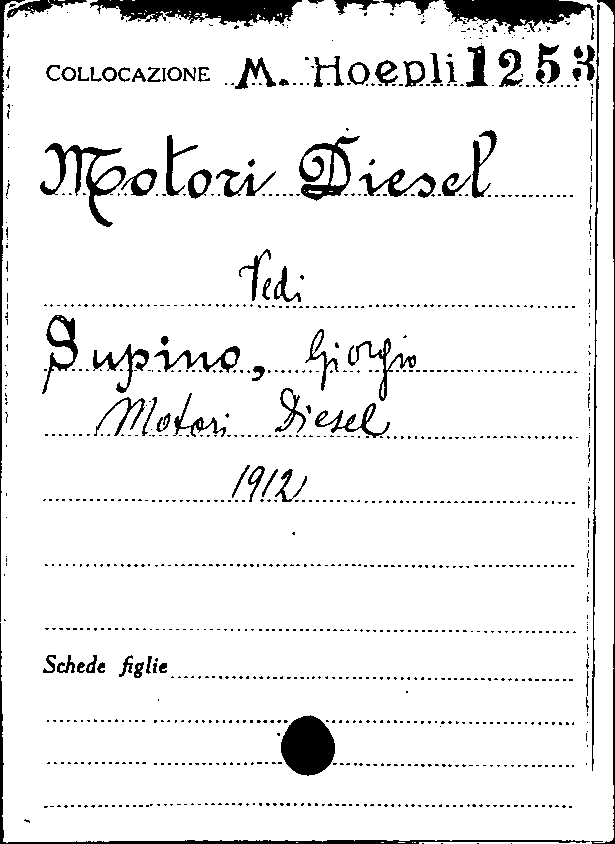 COLLOCAZIONE M. Hoepli 1253
Motori Diesel
Vedi
Supino, Giorgio
Motori Diesel
1912
Schede figlie